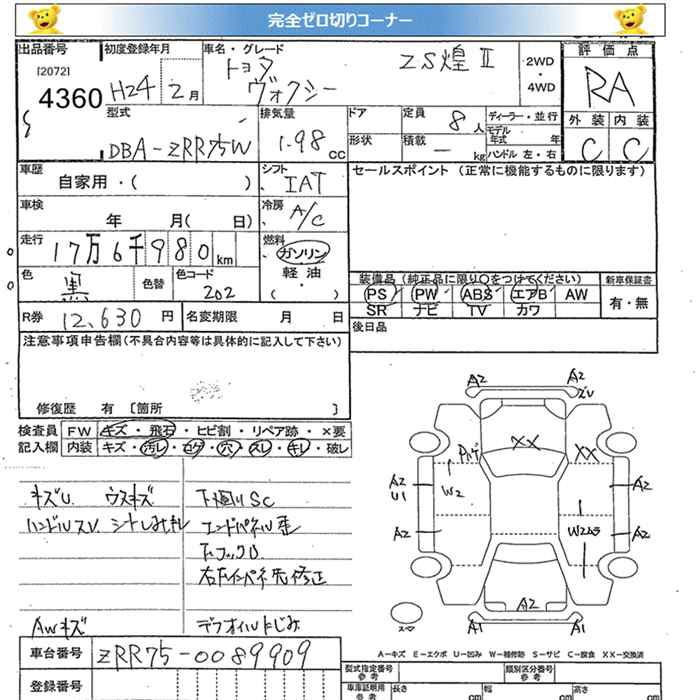 完全ゼロ切りコーナー
出品番号 初度登録年月 車名・グレード 評価点
[2072]
4360 H24 2月 トヨタ ヴォクシー ZS煌 II 2WD・4WD RA
外装 内装
C C
型式 排気量 ドア 定員 8人 ディーラー・並行
DBA-ZRR75W 1.98cc 形状 積載 ー kg モデル年式 年
ハンドル 左・右
車歴 シフト セールスポイント (正常に機能するものに限ります)
自家用・( ) IAT
車検 冷房
年 月( 日) A/C
走行 燃料
17万6千980km ガソリン
軽油
( )
色 色替 色コード
黒 202
装備品 (純正品に限り○をつけてください) 新車保証書
PS PW ABS エアB AW 有・無
SR ナビ TV カワ
R券 12,630円 名変期限 月 日 後日品
注意事項申告欄(不具合内容等は具体的に記入して下さい)
修復歴 有 〔箇所 〕
検査員 FW キズ・飛石・ヒビ割・リペア跡・×要
記入欄 内装 キズ・汚レ・コゲ・穴・スレ・キレ・破レ
A2 A2
XX XX
A2 U1 W2 A2
A2 W2ムラ A2
A2
A1 A1
キズU ウスキズ 下廻りSC
ハンドルスレ シートしみキレ エンドパネル歪
AWキズ デフオイルにじみ
A-キズ E-エクボ U-凹み W-補修跡 S-サビ C-腐食 XX-交換済
車台番号 ZRR75-0089909
登録番号
型式指定番号 参考 類別区分番号 参考
車庫証明用 参考 長さ cm 幅 cm 高さ cm